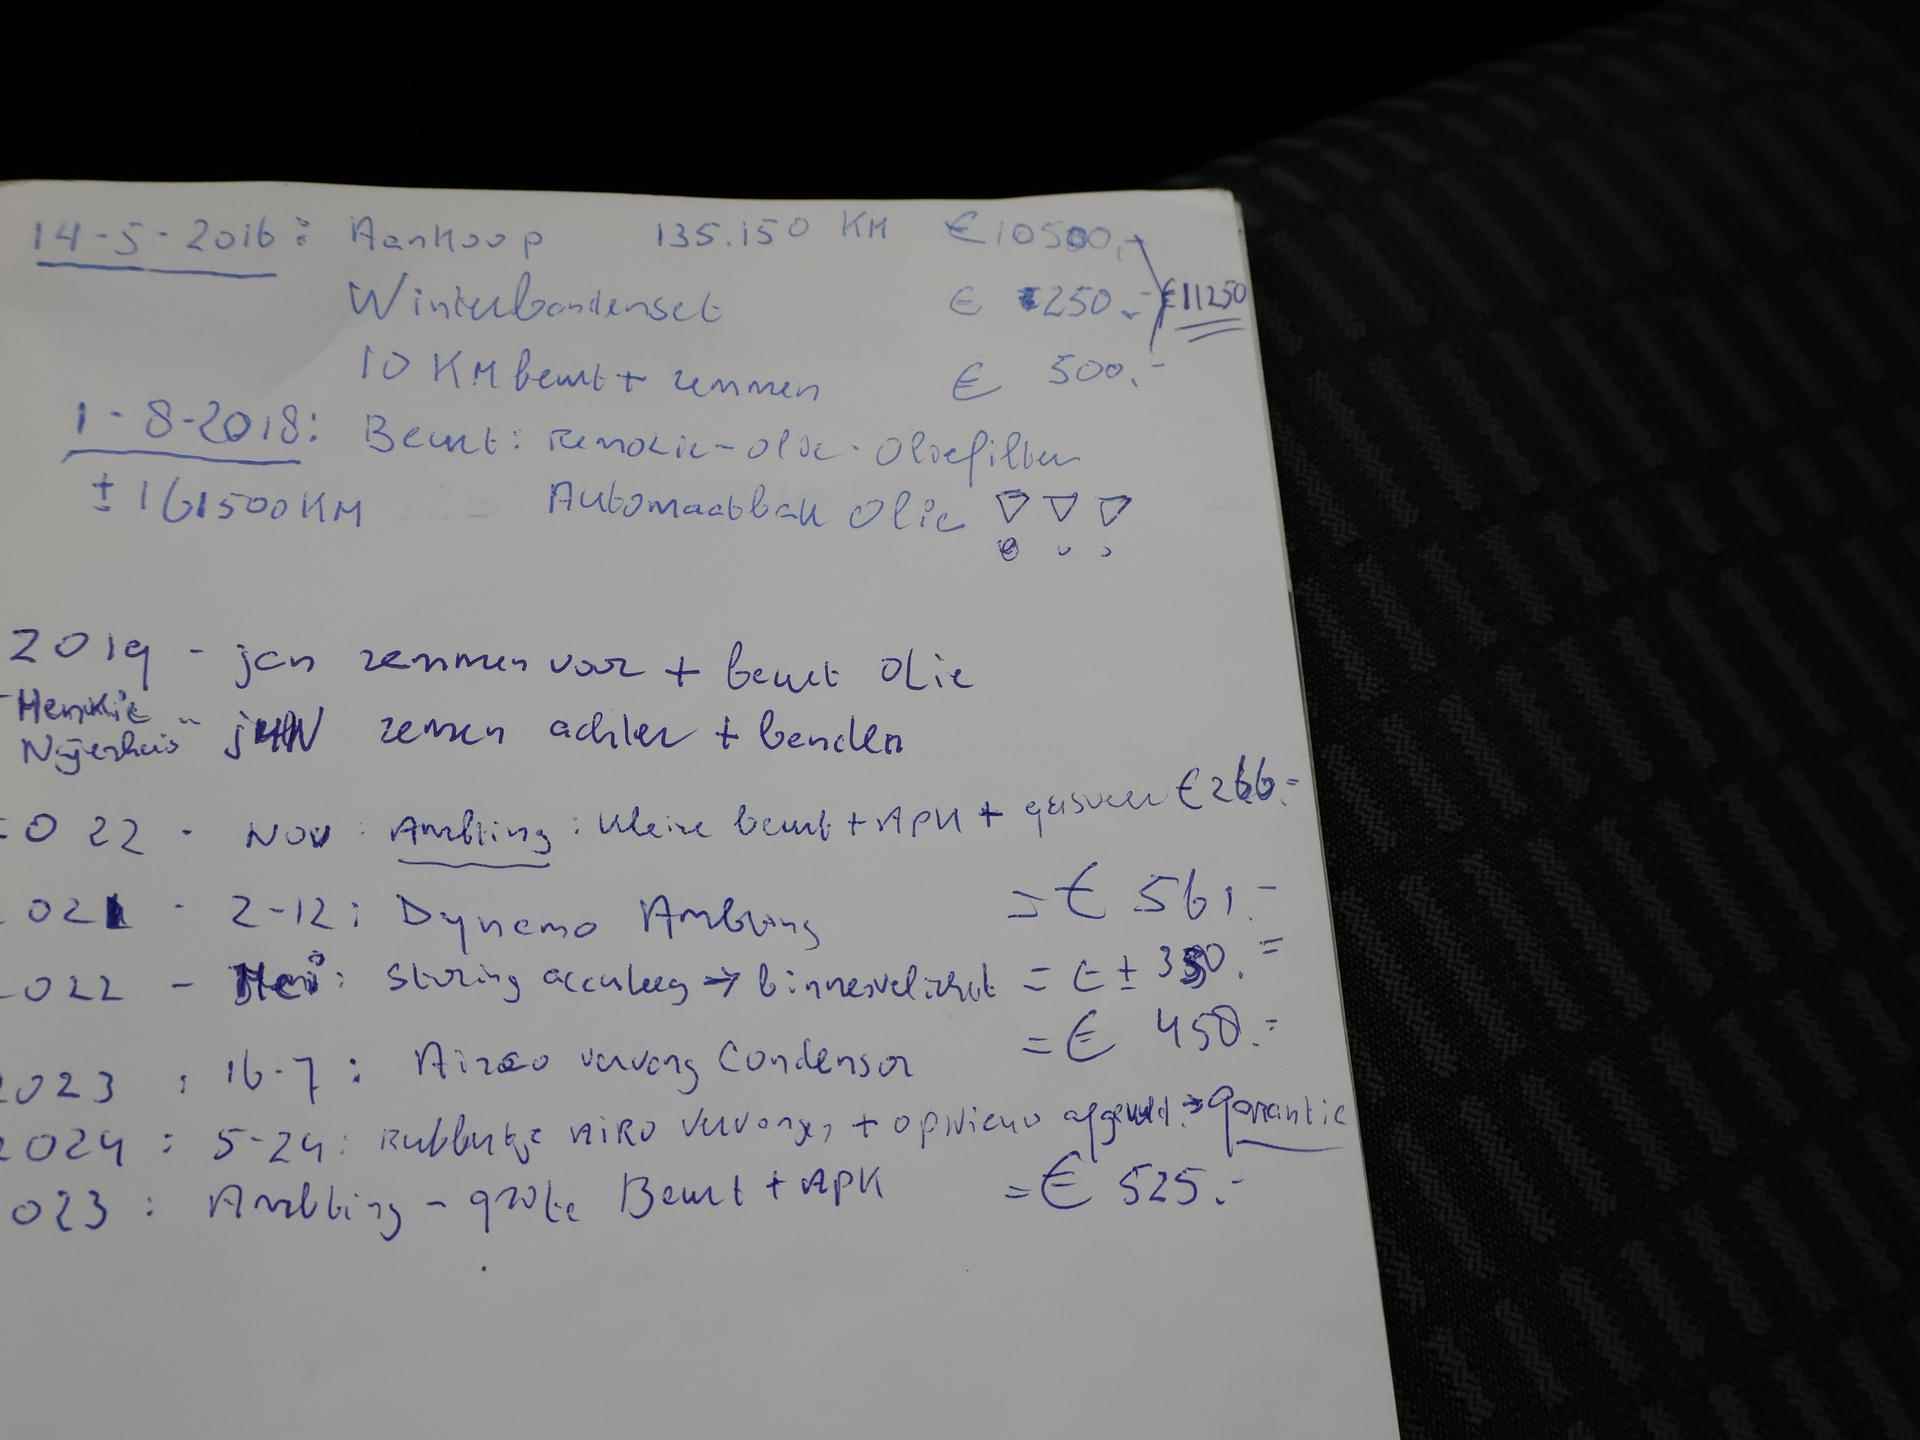 14-5-2016: Aankoop 135.150 KM € 10500,-
Winterbandenset € 250.- € 11250
10 KM beurt + remmen € 500.-
1-8-2018: Beurt: Remolie-olie-Oliefilter
± 161500 KM Automaatbak Olie !!!
2019 - jan remmen voor + beurt Olie
Henkie Nijenhuis " jun remen achter + banden
022 - Nov: : Kleine beurt + APK + € 266.=
021 - 2-12: Dynamo = € 561.-
2022 - Mei: Storing accu leeg → binnenverlicht = € ± 350.=
2023 : 16-7: Airco vervang Condensor = € 450.=
2024 : 5-24: Rubbertje AIRO vervangen + opnieuw afgevuld. → garantie
023 : - grote Beurt + APK = € 525.-